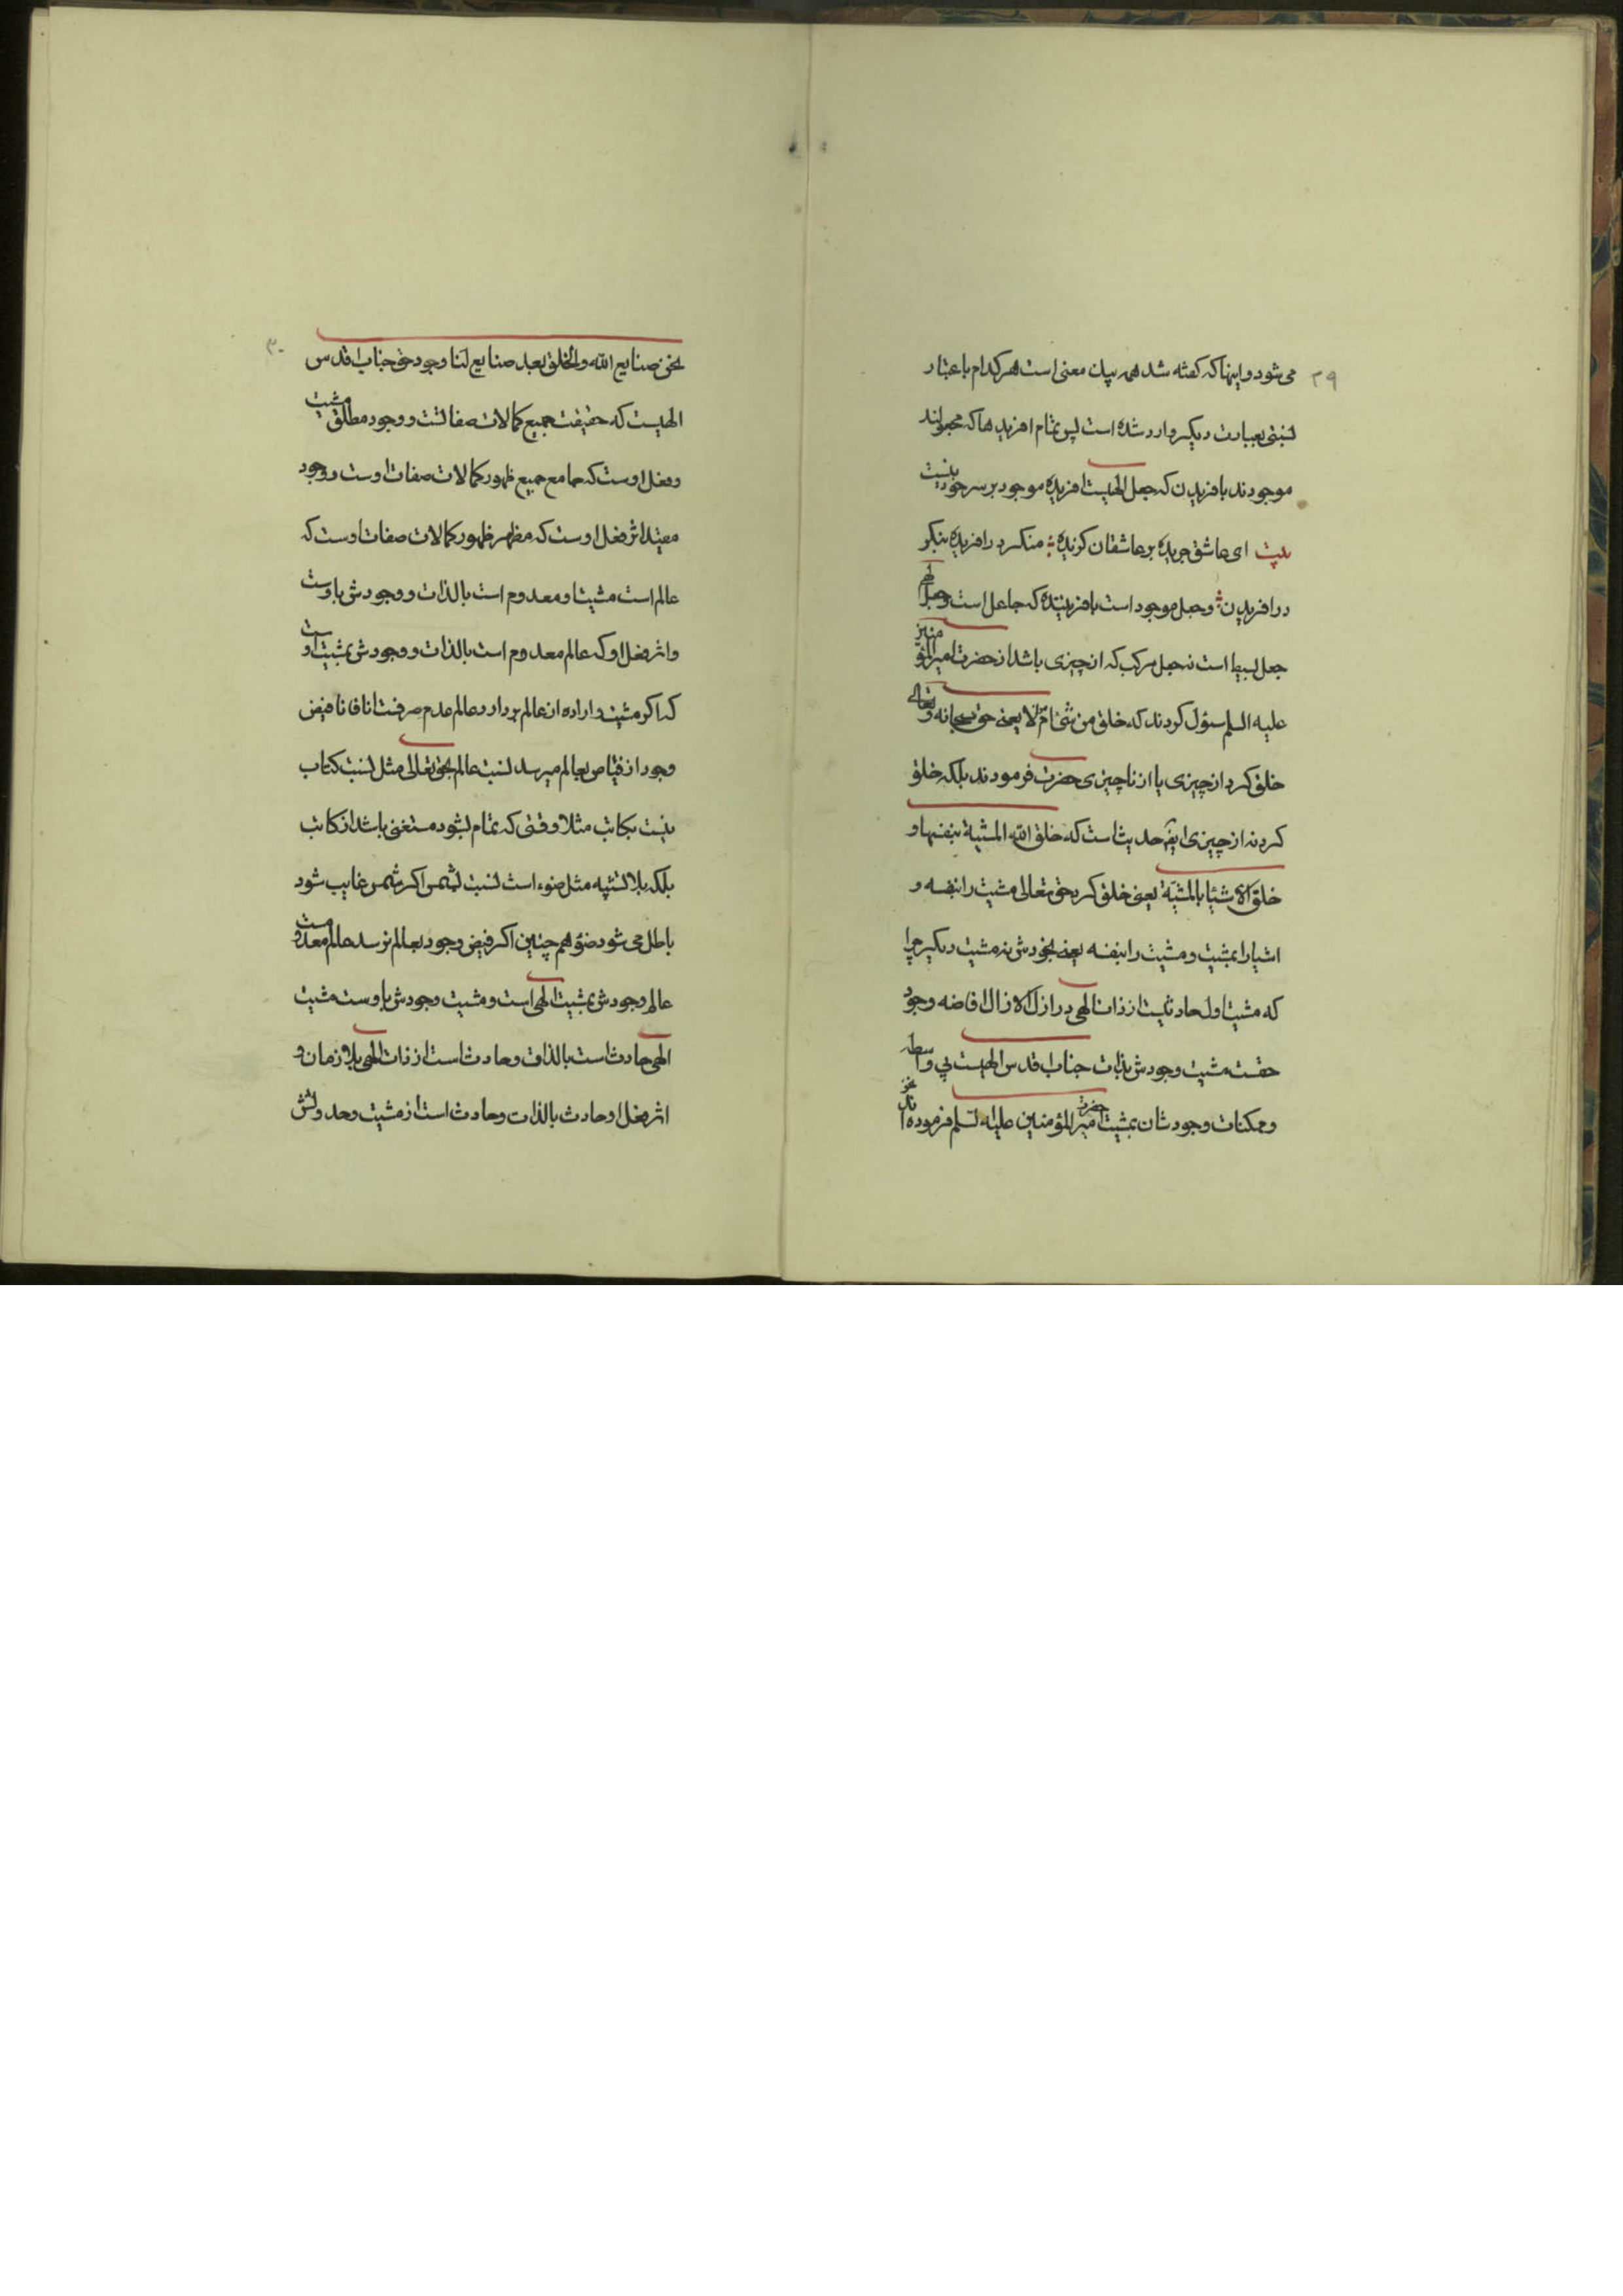 ۲۹
می شود و اینها که کفته شد همه بیان معنی است هر کدام باعتبار
نسبتی بعبارت دیکر وارد شده است پس تمام افریدها که مجعولند
موجودند بافریدن که جعل الهیست افریده موجود بر سر خود نیست
بیت ای عاشق جریده بر عاشقان کزیده منکر در افریده بنکر
در افریدن وجعل موجود است بافریننده که جاعل است وجعل الهی
جعل بسیط است نه جعل مرکب که از چیزی باشد از حضرت امیر المؤمنین
علیه السلم سؤل کردند که خلق من شئ ام من لا یعنی حق سبحانه وتعالی
خلق کرد از چیزی یا از ناچیزی حضرت فرمودند بلکه خلق
کرد نه از چیزی ایضا حدیث است که خلق الله المشیة بنفسها و
خلق الاشیئا بالمشیة یعنی خلق کرد حق تعالی مشیت را بنفسه و
اشیا را بمشیت و مشیت را بنفسه یعنی بخودش نه مشیت دیکر چرا
که مشیت اول حادثیست از ذات الهی در ازل الازال افاضه وجود
حقست مشیت وجودش بذات جناب اقدس الهیست بی واسطه
وممکنات وجودشان بمشیت حضرت امیر المؤمنین علیه لسلم فرموده اند
۳۰
نحن صنایع الله والخلق بعد صنایع لنا وجود حق جناب اقدس
الهیست که حقیقت جمیع کمالات صفاتست و وجود مطلق مشیت
وفعل اوست که جامع جمیع ظهور کمالات صفات اوست و وجود
مقید اثر فعل اوست که مظهر ظهور کمالات صفات اوست که
عالم است مشیت او معدوم است بالذات و وجودش باوست
واثر فعل او که عالم معدوم است بالذات و وجودش بمشیت اوست
که اکر مشیت و اراده از عالم بردارد عالم عدم صرفست انا فانا فیض
وجود از فیاض بعالم میرسد نسبت عالم بحق تعالی مثل نسبت کتاب
نیست بکاتب مثلا وقتی که تمام بشود مستغنی باشد از کاتب
بلکه بلا تشبیه مثل ضوء است نسبت بشمس اکر شمس غایب شود
باطل می شود ضوء هم چنین اکر فیض وجود بعالم نرسد عالم معدومست
عالم وجودش بمشیت الهی است و مشیت وجودش باوست مشیت
الهی حادث است بالذات وحادث است از ذات الهی بلا زمان و
اثر فعل او حادث بالذات وحادث است از مشیت وحدوثش